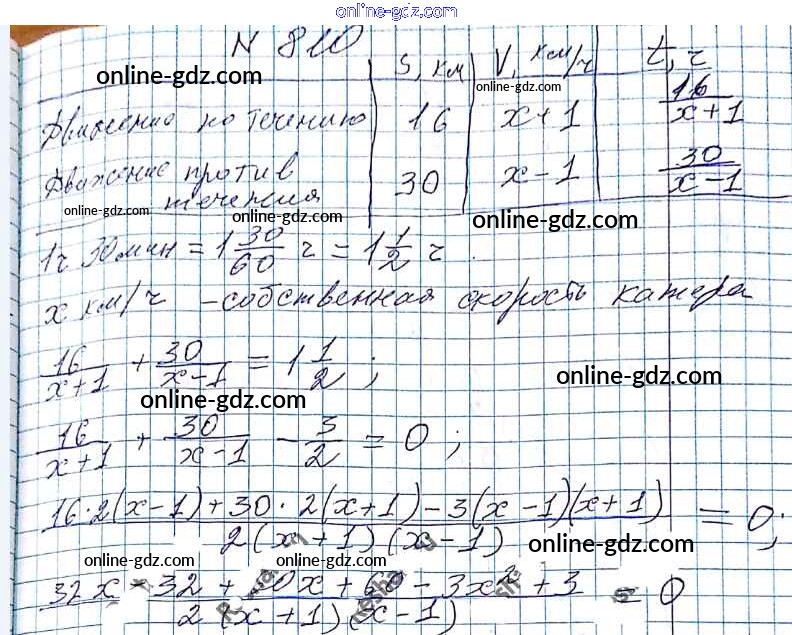 online-gdz.com
N 810
online-gdz.com
S, км V, км/ч t, ч
online-gdz.com
Движение по течению 16 x+1 16/(x+1)
Движение против 30 x-1 30/(x-1)
течения
online-gdz.com online-gdz.com online-gdz.com
1ч 30мин = 1 30/60 ч = 1 1/2 ч.
x км/ч - собственная скорость катера
16/(x+1) + 30/(x-1) = 1 1/2;
online-gdz.com
online-gdz.com
16/(x+1) + 30/(x-1) - 3/2 = 0;
(16·2(x-1)+30·2(x+1)-3(x-1)(x+1))/(2(x+1)(x-1)) = 0;
online-gdz.com online-gdz.com
(32x-32+60x+60-3x²+3)/(2(x+1)(x-1)) = 0